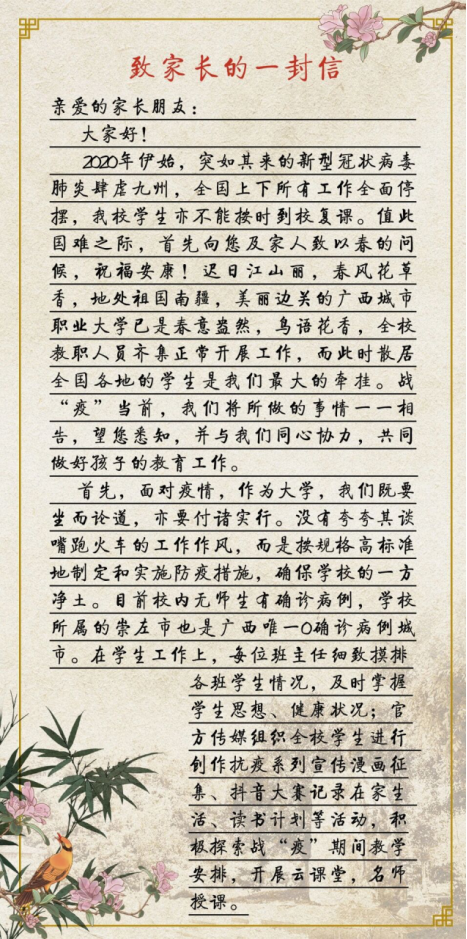 致家长的一封信
亲爱的家长朋友：
大家好！
2020年伊始，突如其来的新型冠状病毒
肺炎肆虐九州，全国上下所有工作全面停
摆，我校学生亦不能按时到校复课。值此
国难之际，首先向您及家人致以春的问
候，祝福安康！迟日江山丽，春风花草
香，地处祖国南疆，美丽边关的广西城市
职业大学已是春意盎然，鸟语花香，全校
教职人员齐集正常开展工作，而此时散居
全国各地的学生是我们最大的牵挂。战
“疫”当前，我们将所做的事情一一相
告，望您悉知，并与我们同心协力，共同
做好孩子的教育工作。
首先，面对疫情，作为大学，我们既要
坐而论道，亦要付诸实行。没有夸夸其谈
嘴跑火车的工作作风，而是按规格高标准
地制定和实施防疫措施，确保学校的一方
净土。目前校内无师生有确诊病例，学校
所属的崇左市也是广西唯一0确诊病例城
市。在学生工作上，每位班主任细致摸排
各班学生情况，及时掌握
学生思想、健康状况；官
方传媒组织全校学生进行
创作抗疫系列宣传漫画征
集、抖音大赛记录在家生
活、读书计划等活动，积
极探索战“疫”期间教学
安排，开展云课堂，名师
授课。